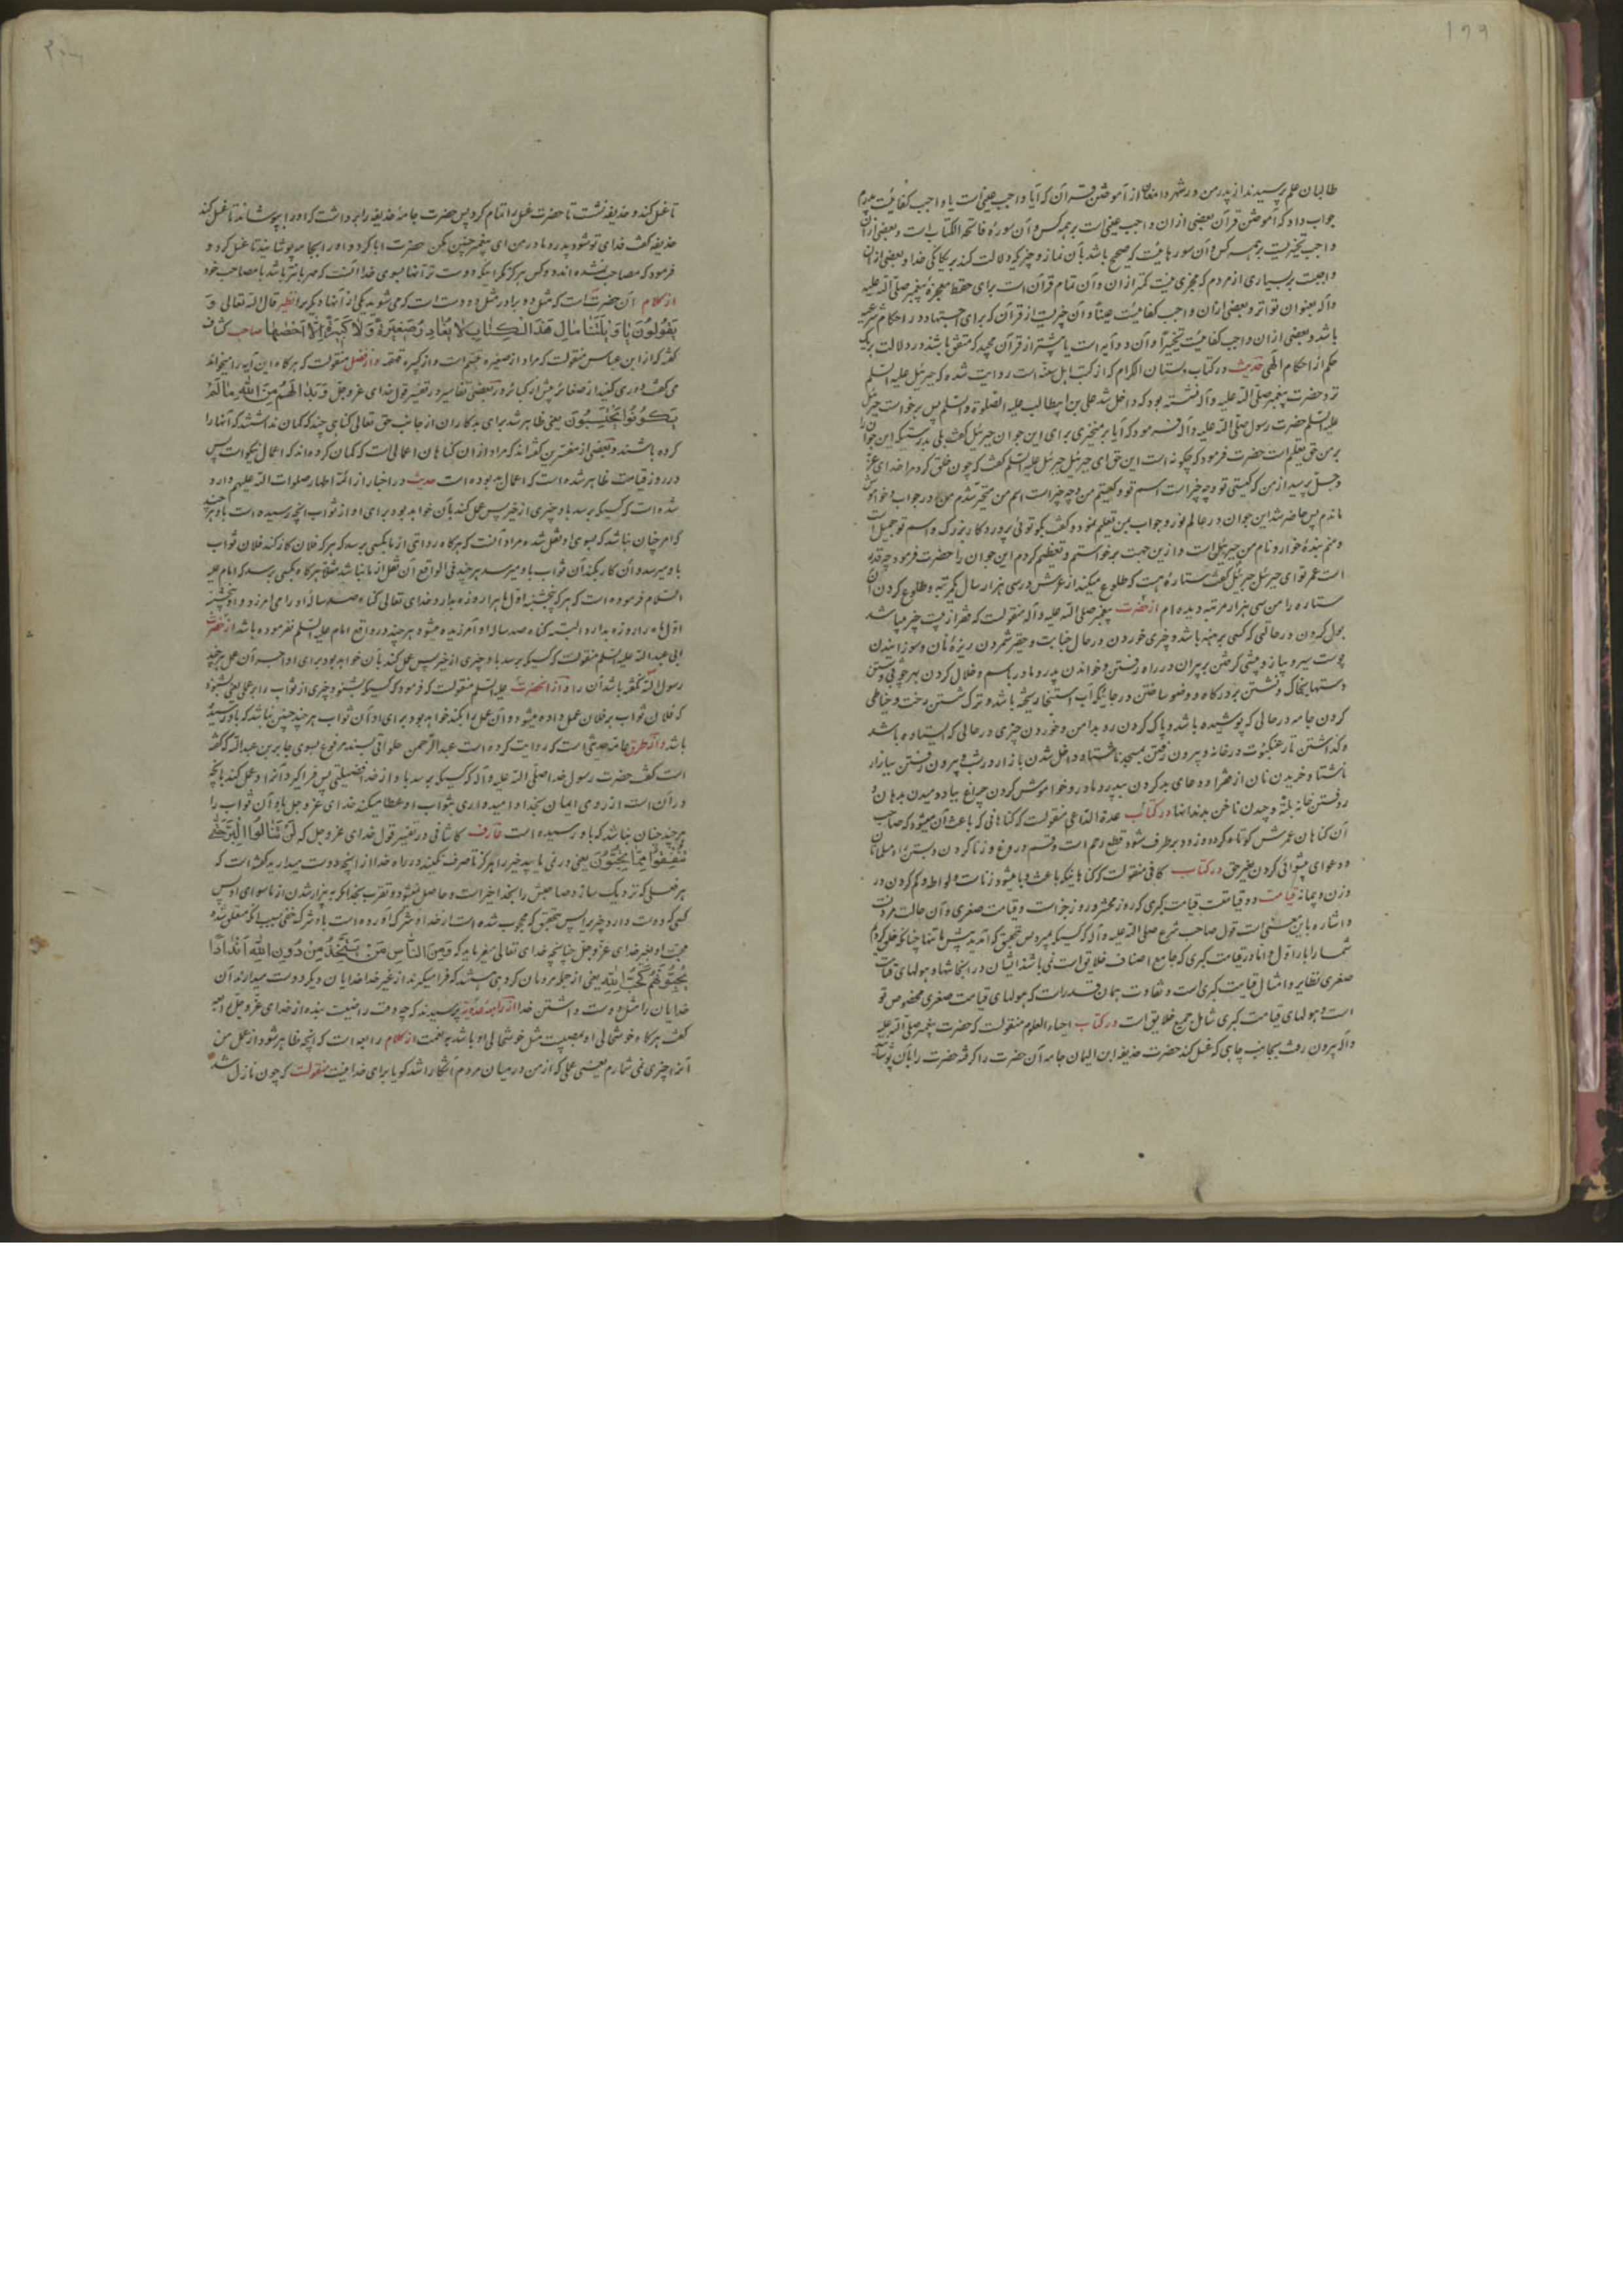 ۱۹۹
طالبان علم پرسیدند از پدر من در شهر دامغان از آموختن قرآن که آیا واجب عینی است یا واجب کفائیست پدرم
جواب داد که آموختن قرآن بعضی از ان واجب عینی است بر همه کس و آن سورۀ فاتحة الکتاب است و بعضی از ان
واجب تخییریست بر همه کس و آن سورهائیست که صحیح باشد بآن نماز و چیزیکه دلالت کند بر یکانکی خدا و بعضی از ان
واجبست بر بسیاری از مردم که مجزی نیست کمتر از ان و آن تمام قرآن است برای حفظ معجزۀ پیغمبر صلی الله علیه
و آله بعنوان تواتر و بعضی از ان واجب کفائیست عیناً و آن جزیست از قرآن که برای اجتهاد در احکام شرعیه
باشد و بعضی از ان واجب کفائیست تخییراً و آن دو آیه است یا بیشتر از قرآن مجید که متفق باشند در دلالت بر یک
حکم از احکام الهی حدیث در کتاب بستان الکرام که از کتب اهل سنّت است روایت شده که جبرئیل علیه السلم
نزد حضرت پیغمبر صلی الله علیه و آله نشسته بود که داخل شد علی بن ابیطالب علیه الصلوة والسلم پس برخواست جبرئیل
علیه السلم حضرت رسول صلی الله علیه و آله فرمود که آیا بر میخیزی برای این جوان جبرئیل گفت بلی بدرستیکه این جوان را
بر من حق تعلیم است حضرت فرمود که چکونه است این حق ای جبرئیل جبرئیل علیه السلم گفت که چون خلق کرد مرا خدای عزّ
و جل پرسید از من که کیستی تو و چه چیز است اسم تو و کیستم من و چه چیز است اسم من متحیر شدم من در جواب و خواموش
ماندم پس حاضر شد این جوان در عالم نور و جواب بمن تعلیم نمود و گفت بکو توئی پروردکار بزرک و اسم تو جمیل است
و منم بندۀ خوار و نام من جبرئیل است و ازین جهت برخواستم و تعظیم کردم این جوان را حضرت فرمود چه قدر
است عمر تو ای جبرئیل جبرئیل گفت ستارۀ هست که طلوع میکند از عرش در سی هزار سال یکمرتبه و طلوع کردن آن
ستاره را من سی هزار مرتبه دیده ام از حضرت پیغمبر صلی الله علیه و آله منقولست که فقر از بیست چیز میباشد
بول کردن در حالتی که کسی برهنه باشد و چیزی خوردن در حال جنابت و حقیر شمردن ریزۀ نان و سوزانیدن
پوست سیر و پیاز و پیشی کرفتن بر پیران در راه رفتن و خواندن پدر و مادر باسم و خلال کردن بهر چوبی و شستن
دستها بخاک و نشستن بر درکاه و وضو ساختن در جائیکه آب استنجا ریخته باشد و ترک شستن رخت و خیاطی
کردن جامه در حالی که پوشیده باشد و پاک کردن رو بدامن و خوردن چیزی در حالی که ایستاده باشد
و کذاشتن تار عنکبوت در خانه و بیرون رفتن بمسجد ناشتا و داخل شدن بازار در شب و بیرون رفتن ببازار
ناشتا و خریدن نان از فقرا و دعای بد کردن ببدر و مادر و خواموش کردن چراغ بباد دمیدن بدهان و
روفتن خانه بلته و چیدن ناخن بدندانها در کتاب عدة الداعی منقولست که کناهانی که باعث آن میشود که صاحب
آن کناهان عمرش کوتاه کردد و زود بر طرف شود قطع رحم است و قسم دروغ و زنا کردن و بستن راه مسلمانان
و دعوای پیشوائی کردن بغیر حق در کتاب کافی منقولست که کناهانیکه باعث وبا میشود زناست و لواطه و کم کردن در
وزن و پیمانه قیامت دو قیامتست قیامت کبری که روز محشر و روز جزاست و قیامت صغری و آن حالت مردنست
و اشاره باین معنی است قول صاحب شرع صلی الله علیه و آله که کسیکه میرد پس بتحقیق که آمدید پیش ما تنها چنانکه خلق کردیم
شما را بار اوّل و اما در قیامت کبری که جامع اصناف خلایق است نمی باشد انسان در انجا تنها و هولهای قیامت
صغری نظایر و امثال قیامت کبری است و تفاوت همان قدر است که هولهای قیامت صغری مخصوص تو
است و هولهای قیامت کبری شامل جمیع خلایق است در کتاب احیاء العلوم منقولست که حضرت پیغمبر صلی الله علیه
و آله بیرون رفت بجانب چاهی که غسل کند حضرت حذیفه ابن الیمان جامه آن حضرت را کرفته حضرت را بآن پوشانید
تا غسل کند و حذیفه نشست تا حضرت غسل را تمام کرد پس حضرت جامۀ حذیفه را برداشت که او را بپوشاند تا غسل کند
حذیفه گفت فدای تو شود پدر و مادر من ای پیغمبر چنین مکن حضرت ابا کرد و او را بجامه پوشانید تا غسل کرد و
فرمود که مصاحب نشده اند دو کس هرکز مکر اینکه دوست تر آنها بسوی خدا آنست که مهربانتر باشد با مصاحب خود
از کلام آن حضرت است که مثل دو برادر مثل دو دست است که می شوید یکی از آنها دیکریرا نظیر قال الله تعالی وَ
یَقُولُونَ یَا وَیْلَتَنَا مَالِ هَذَا الْکِتَابِ لَا یُغَادِرُ صَغِیرَةً وَلَا کَبِیرَةً إِلَّا أَحْصَاهَا صاحب کشاف
گفته که از ابن عباس منقولست که مراد از صغیره تبسّم است و از کبیره قهقهه و از فضیل منقولست که هرکاه این آیه را میخواند
می گفت دوری کنید از صغائر پیش از کبائر و در بعضی تفاسیر در تفسیر قول خدای عزوجل وَ بَدَا لَهُمْ مِنَ اللَّهِ مَا لَمْ
یَکُونُوا یَحْتَسِبُونَ یعنی ظاهر شد برای بدکاران از جانب حق تعالی کناهی چند که کمان نداشتند که آنها را
کرده باشند و بعضی از مفسّرین گفته اند که مراد از ان کناهان اعمالی است که کمان کرده اند که اعمال نیکو است پس
در روز قیامت ظاهر شده است که اعمال بد بوده است حدیث در اخبار از ائمّة اطهار صلوات الله علیهم وارد
شده است که کسیکه برسد باو چیزی از خیر پس عمل کند بآن خواهد بود برای او از ثواب آنچه رسیده است باو هرچند
که امر چنان نباشد که بسوی او نقل شده مراد آنست که هرکاه روایتی از ما بکسی برسد که هرکه فلان کار کند فلان ثواب
باو میرسد و آن کار بکند آن ثواب باو میرسد هر چند فی الواقع آن نقل از ما نباشد مثلا هرکاه بکسی برسد که امام علیه
السلام فرموده است که هرکه پنجشنبه اوّل ماه را روزه بدارد خدای تعالی کناه صد سالۀ او را می آمرزد و او پنجشنبه
اوّل ماه را روزه بدارد البته کناه صد سالۀ او آمرزیده میشود هر چند در واقع امام علیه السلم نفرموده باشد از حضرت
ابی عبد الله علیه السلم منقولست که کسیکه برسد باو چیزی از خیر پس عمل کند بآن خواهد بود برای او اجر آن عمل هر چند
رسول الله نگفته باشد آن را و از آنحضرت علیه السلم منقولست که فرمود که کسیکه بشنود چیزی از ثواب را بر عملی یعنی بشنود
که فلان ثواب بر فلان عمل داده میشود و آن عمل را بکند خواهد بود برای او آن ثواب هر چند چنین نباشد که باو رسیده
باشد و از طرق عامّه حدیثی است که روایت کرده است عبد الرحمن حلوانی بسند مرفوع بسوی جابر بن عبد الله که گفته
است گفت حضرت رسول خدا صلی الله علیه و آله که کسیکه برسد باو از خدا فضیلتی پس فراکیرد آنرا و عمل کند بآنچه
در آن است از روی ایمان بخدا و امیدواری بثواب او عطا میکند خدای عزوجل باو آن ثواب را
هر چند چنان نباشد که باو رسیده است عارف کاشانی در تفسیر قول خدای عزوجل که لَنْ تَنَالُوا الْبِرَّ حَتَّى
تُنْفِقُوا مِمَّا تُحِبُّونَ یعنی در نمی یابید خیر را هرکز تا صرف نکنید در راه خدا از آنچه دوست میدارید گفته است که
هر فعلی که نزدیک سازد صاحبش را بخدا خیر است و حاصل نمیشود تقرب بخدا مکر به بیزار شدن از ما سوای او پس
کسی که دوست دارد چیزیرا پس بتحقیق که محجوب شده است از خدا و شرک آورده است باو شرک خفی بسبب آنکه متعلق شده
محبت او بغیر خدای عزوجل چنانچه خدای تعالی میفرماید که وَ مِنَ النَّاسِ مَنْ یَتَّخِذُ مِنْ دُونِ اللَّهِ أَنْدَادًا
یُحِبُّونَهُمْ کَحُبِّ اللَّهِ یعنی از جمله مردمان کروهی هستند که فرا میکیرند از غیر خدا خدایان دیکر دوست میدارند آن
خدایان را مثل دوست داشتن خدا از رابعه عدویه پرسیدند که چه وقت راضیست بنده از خدای عزوجل رابعه
گفت هرکاه خوشحالی او بمصیبت مثل خوشحالی او باشد بنعمت از کلام رابعه است که آنچه ظاهر شود از عمل من
آنرا چیزی نمی شمارم یعنی عملی که از من در میان مردم آشکارا شد کویا برای خدا نیست منقولست که چون نازل شد